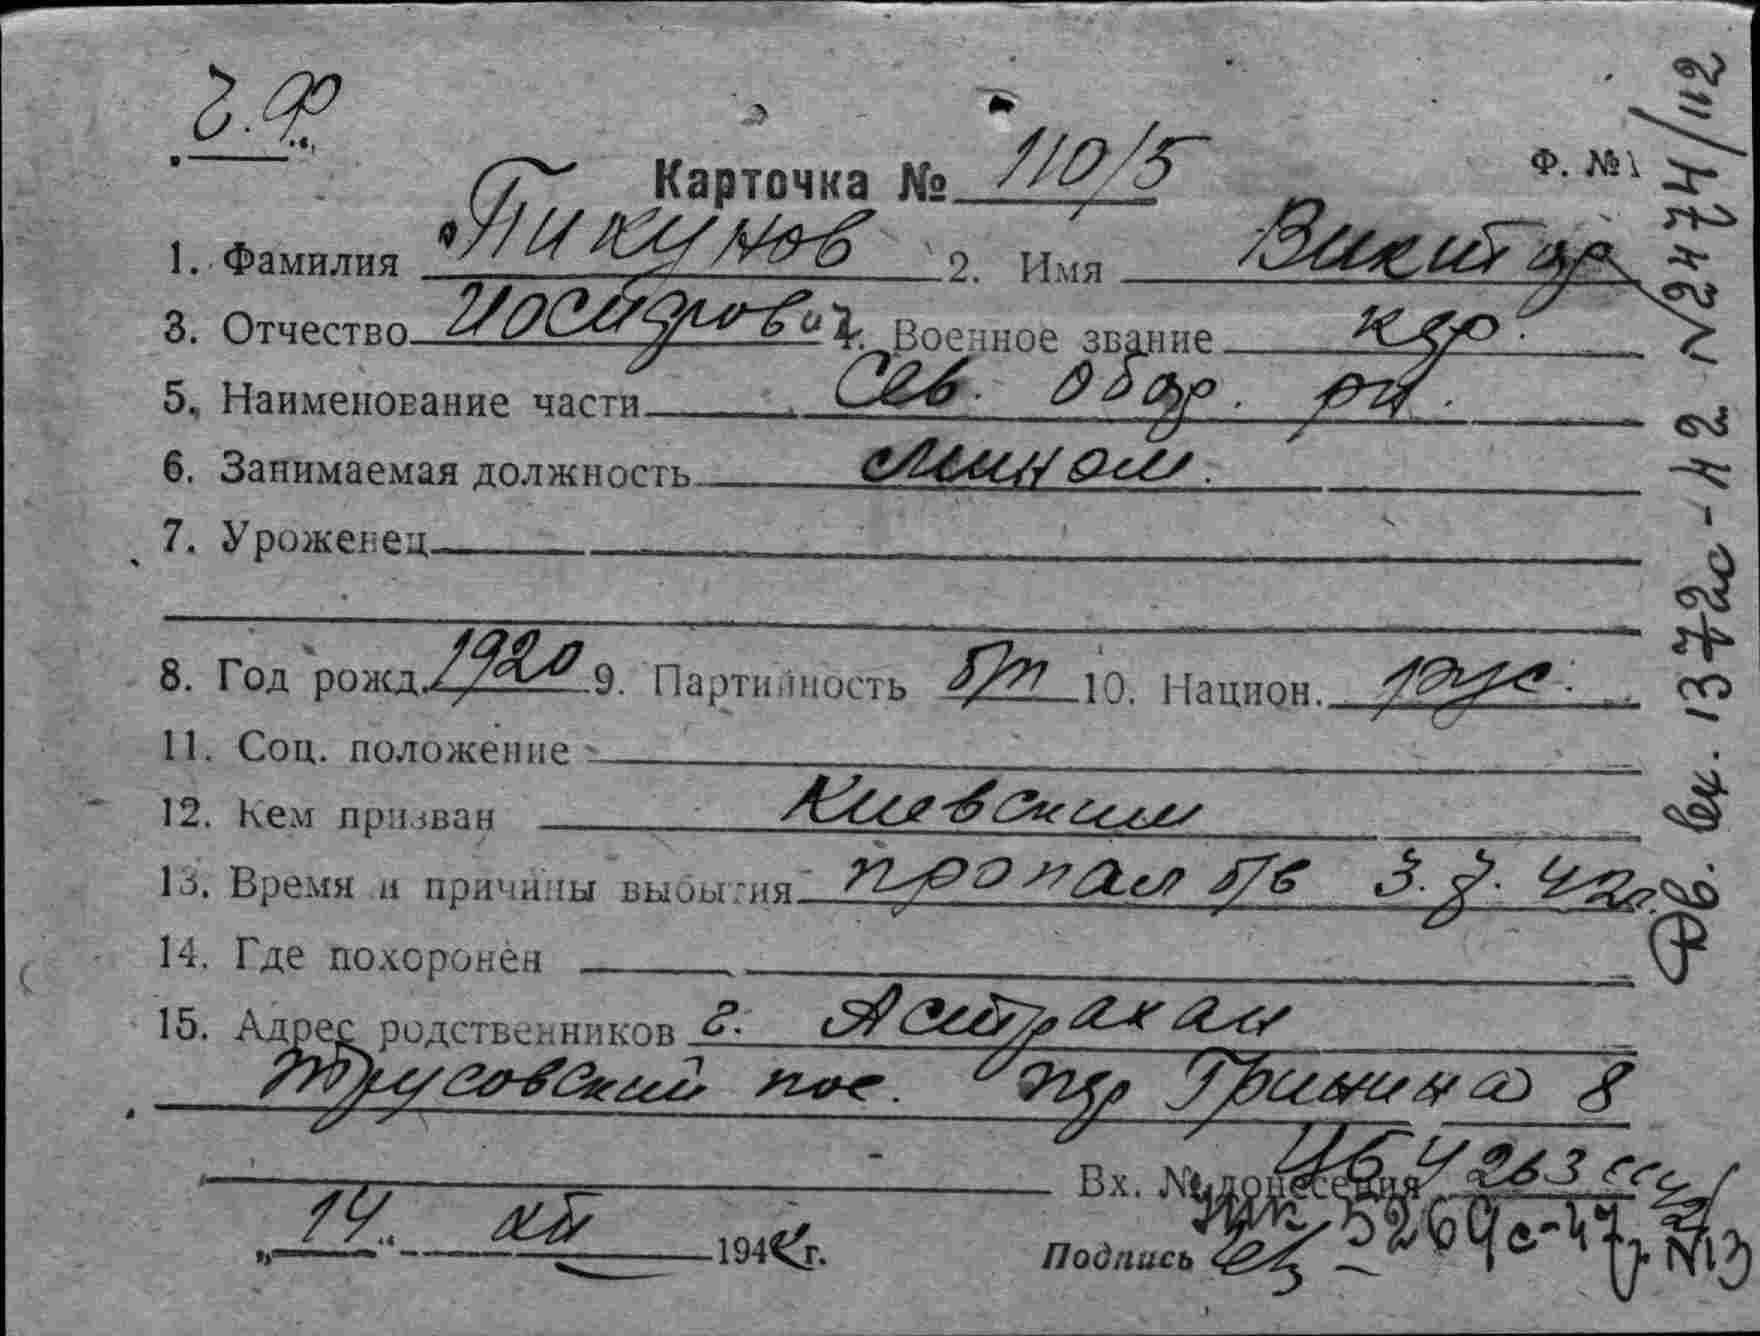 Ч.Ф.
Карточка № 110/5
Ф. №1
1. Фамилия Пикунов 2. Имя Виктор
3. Отчество Исидрович 4. Военное звание кдр.
5. Наименование части Сев. обор. рн.
6. Занимаемая должность
7. Уроженец
8. Год рожд. 1920 9. Партийность б/п 10. Национ. рус.
11. Соц. положение
12. Кем призван Киевским
13. Время и причины выбытия пропал б/в 3.7.42г.
14. Где похоронен
15. Адрес родственников г. Астрахан
Трусовский пос. пер Гринина 8
Вх. № донесения
„14“ 194 г.
Подпись
вх. 1372с-42 №2474/112